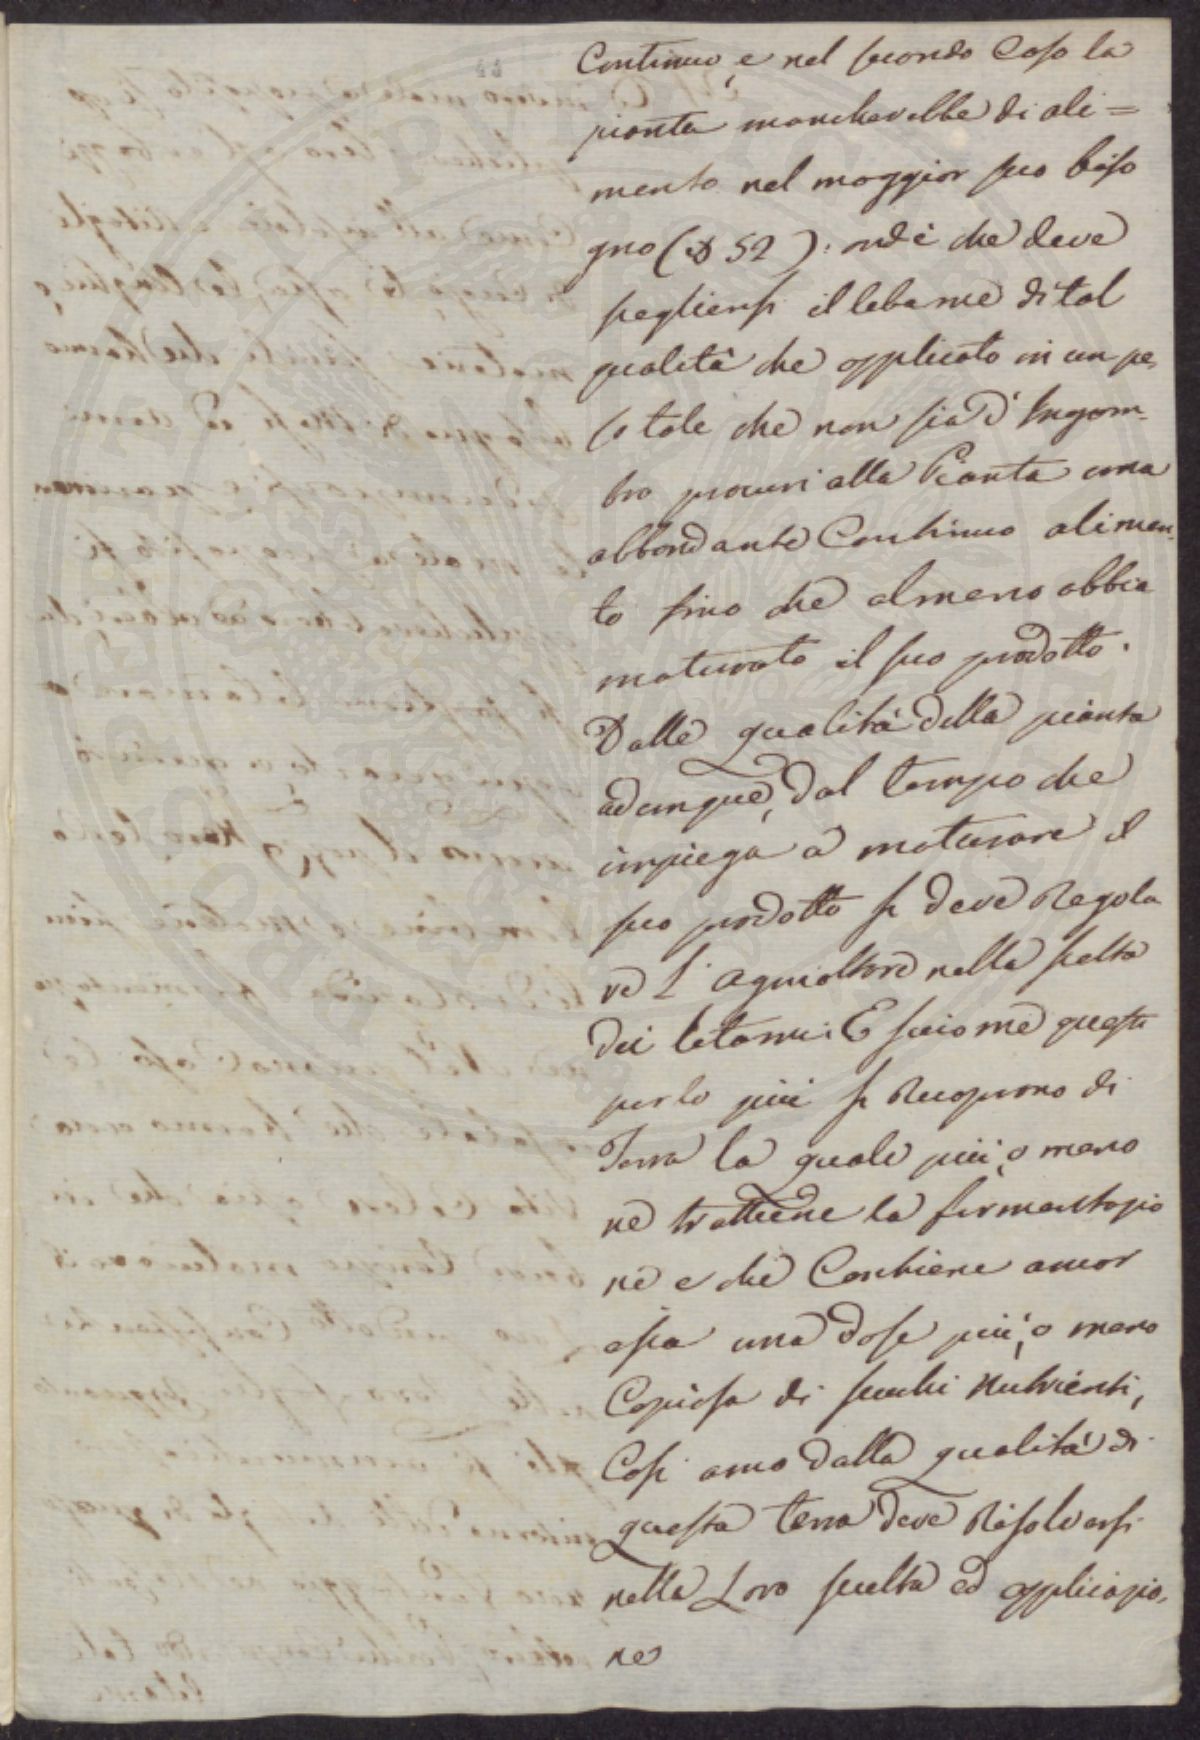 Continuo, e nel secondo Caso la
pianta mancherebbe di ali=
mento nel maggior suo biso
gno (§ 52): ond'è che deve
scegliersi il letame di tal
qualità che applicato in un pe,
so tale che non sia d'Ingom-
bro procuri alla Pianta una
abbondante Continuo alimen,
to fino che almeno abbia
maturato il suo prodotto.
Dalle qualità della pianta
adunque, dal tempo che
impiega a maturare il
suo prodotto si deve Regola
re L'Agricoltore nella scelta
dei letami: E siccome questi
per lo più si Ricoprono di
Terra la quale più, o meno
ne trattiene la fermentazio
ne e che Contiene ancor
essa una dose più, o meno
Copiosa di succhi Nutrienti,
Così anco dalla qualità di
questa terra deve Risolversi
nella Loro scelta ed applicazio,
ne